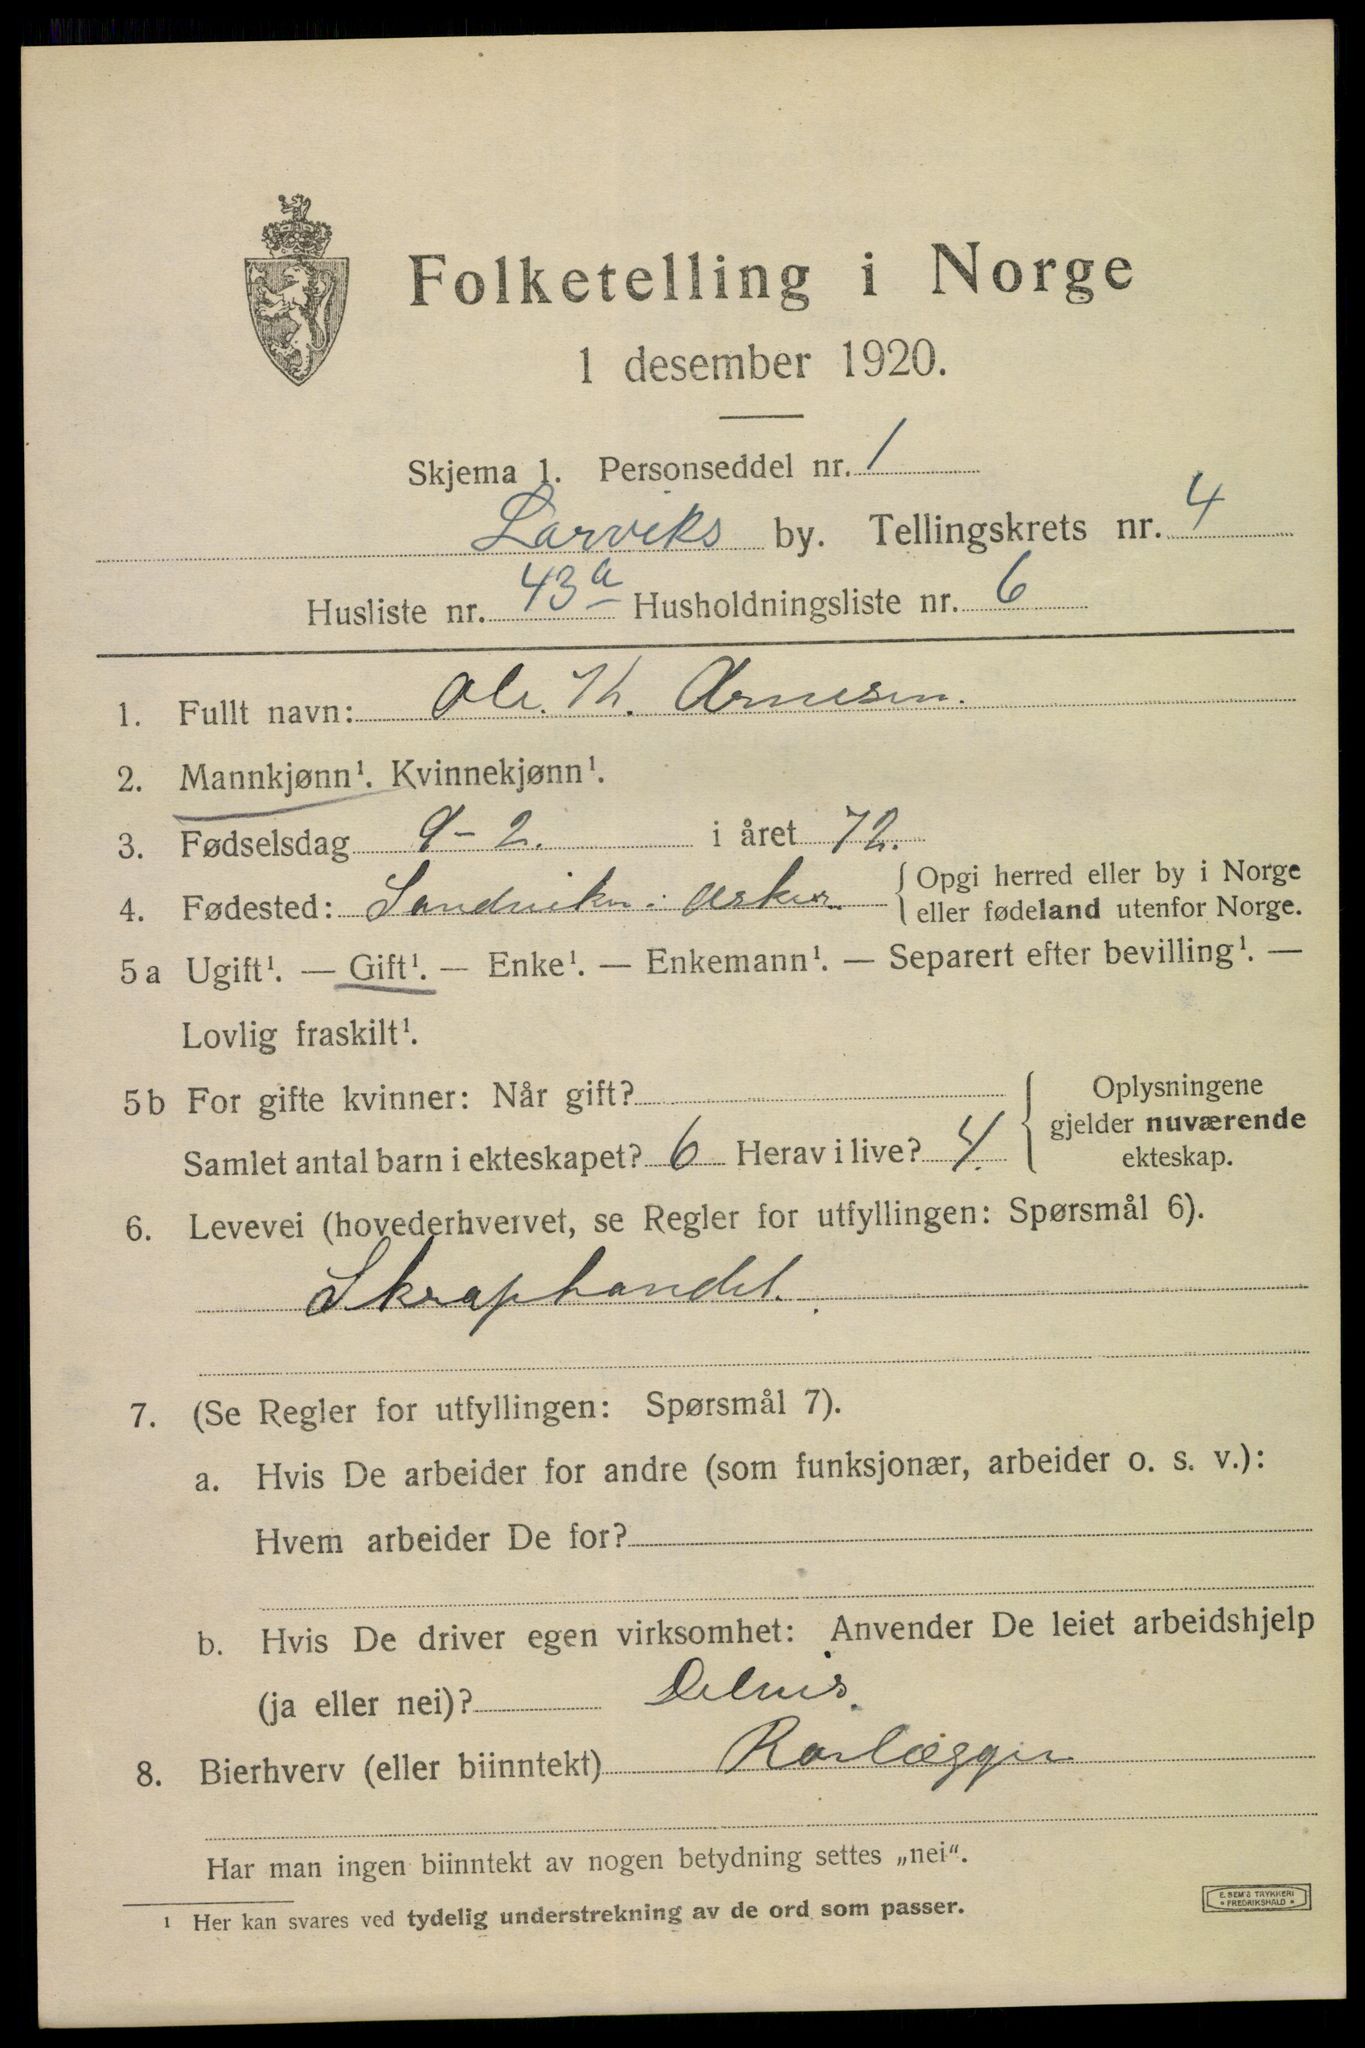 Folketelling i Norge
1 desember 1920.
Skjema 1. Personseddel nr. 1
Larviks by. Tellingskrets nr. 4
Husliste nr. 43a Husholdningsliste nr. 6
1. Fullt navn: Ole. Th. Arnesen.
2. Mannkjønn¹. Kvinnekjønn¹.
3. Fødselsdag 9-2. i året 72.
4. Fødested: Sandviken i Asker. { Opgi herred eller by i Norge
eller fødeland utenfor Norge.
5a Ugift¹. — Gift¹. — Enke¹. — Enkemann¹. — Separert efter bevilling¹. —
Lovlig fraskilt¹.
5b For gifte kvinner: Når gift? { Oplysningene
gjelder nuværende
Samlet antal barn i ekteskapet? 6 Herav i live? 4. ekteskap.
6. Levevei (hovederhvervet, se Regler for utfyllingen: Spørsmål 6).
Skraphandel.
7. (Se Regler for utfyllingen: Spørsmål 7).
a. Hvis De arbeider for andre (som funksjonær, arbeider o. s. v.):
Hvem arbeider De for?
b. Hvis De driver egen virksomhet: Anvender De leiet arbeidshjelp
(ja eller nei)? Delvis.
8. Bierhverv (eller biinntekt) Rørlægger
Har man ingen biinntekt av nogen betydning settes „nei“.
¹ Her kan svares ved tydelig understrekning av de ord som passer.
E. SEM'S TRYKKERI
FREDRIKSHALD